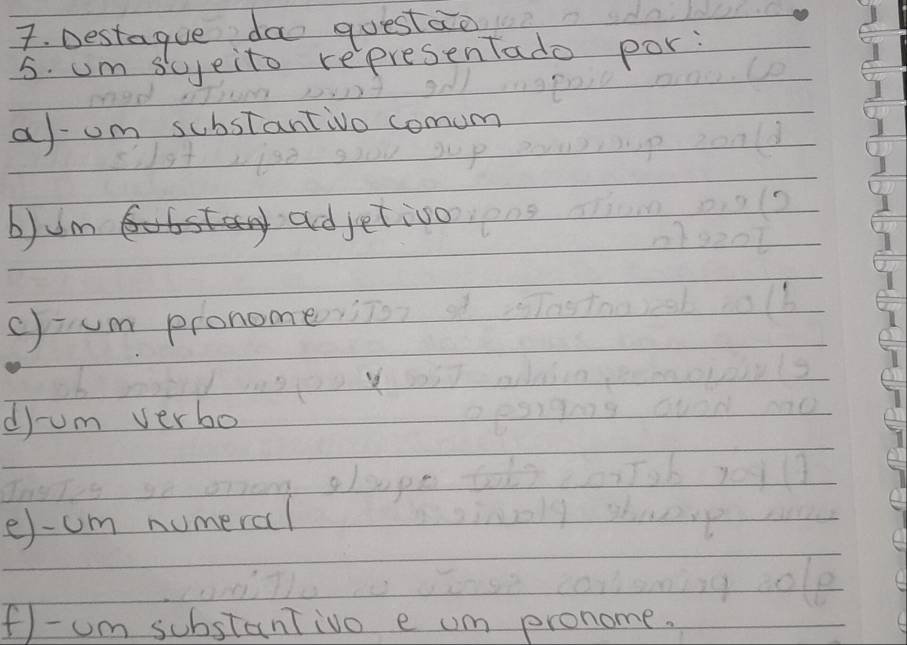 7. Destaque da questão
5. um sujeito representado por:
a)-um substantivo comum
b) um adjetivo
c)-um pronome
d)-um verbo
e)-um numeral
f)-um substantivo e um pronome.